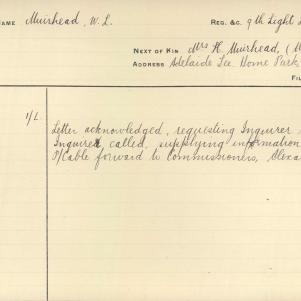 NAME Muirhead, W. L. REG. &C. 9th Light
NEXT OF KIN Mrs H. Muirhead, (M
ADDRESS Adelaide Tce. Home Park
FIL
1/L. Letter acknowledged, requesting Inquirer
Inquirer called, supplying information
P/Cable forward to Commissioners, Alexa